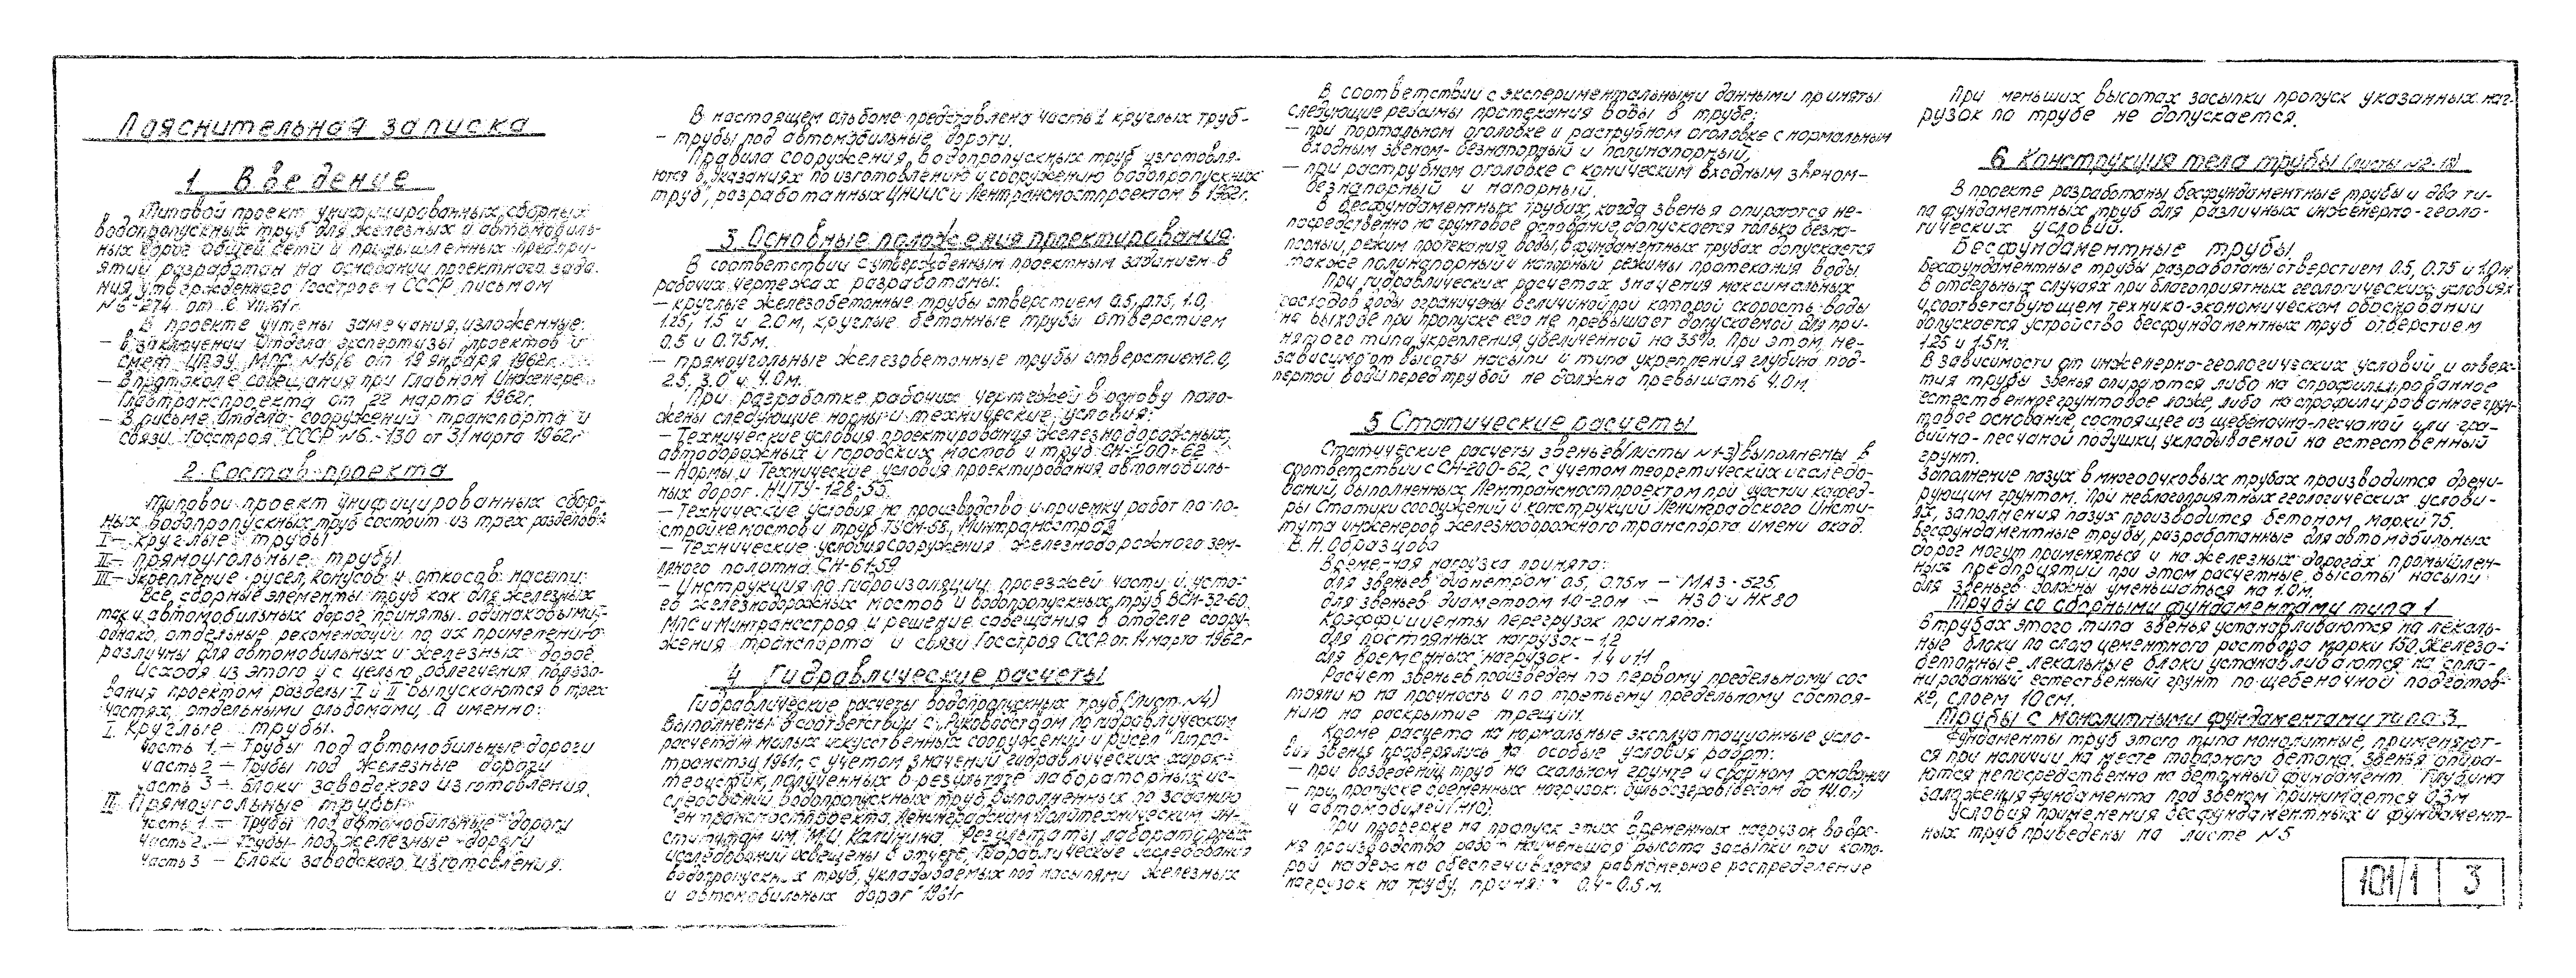 Пояснительная записка
1 Введение
Типовой проект унифицированных сборных
водопропускных труб для железных и автомобиль-
ных дорог общей сети и промышленных предпри-
ятий разработан на основании проектного зада-
ния, утвержденного Госстроем СССР, письмом
№ 6-274 от 6 VII.61г.
В проекте учтены замечания, изложенные:
— в заключении отдела экспертизы проектов и
смет ЦПЭУ МПС №45/6 от 19 января 1962г.
— в протоколе совещания при Главном инженере
Главтранспроекта от 22 марта 1962г.
— в письме отдела сооружений транспорта и
связи Госстроя СССР №6-130 от 31 марта 1962г
2. Состав проекта
Типовой проект унифицированных сбор-
ных водопропускных труб состоит из трех разделов:
I — круглые трубы
II — прямоугольные трубы
III — Укрепление русел, конусов и откосов насыпи.
Все сборные элементы труб как для железных
так и автомобильных дорог приняты одинаковыми,
однако, отдельные рекомендации по их применению
различны для автомобильных и железных дорог.
Исходя из этого и с целью облегчения пользо-
вания проектом разделы I и II выпускаются в трех
частях, отдельными альбомами, а именно:
I. Круглые трубы.
Часть 1 — Трубы под автомобильные дороги
Часть 2 — Трубы под железные дороги
Часть 3 — Блоки заводского изготовления.
II. Прямоугольные трубы
Часть 1 — Трубы под автомобильные дороги
Часть 2 — Трубы под железные дороги
Часть 3 — Блоки заводского изготовления.
В настоящем альбоме представлена часть 1 круглых труб-
— трубы под автомобильные дороги.
Правила сооружения водопропускных труб изготовля-
ются в „указаниях по изготовлению и сооружению водопропускных
труб", разработанных ЦНИИС и Лентрансмостпроектом в 1962г.
3. Основные положения проектирования
В соответствии с утвержденным проектным заданием в
рабочих чертежах разработаны:
— круглые железобетонные трубы отверстием 0.5, 0.75, 1.0,
1.25, 1.5 и 2.0м, круглые бетонные трубы отверстием
0.5 и 0.75м.
— прямоугольные железобетонные трубы отверстием 2.0,
2.5, 3.0 и 4.0м.
При разработке рабочих чертежей в основу поло-
жены следующие нормы и технические условия:
— Технические условия проектирования железнодорожных,
автодорожных и городских мостов и труб СН-200-62
— Нормы и Технические условия проектирования автомобиль-
ных дорог. НИТУ-128-55.
— Технические условия на производство и приемку работ по по-
стройке мостов и труб ТУСМ-58, Минтрансстроя
— Технические условия сооружения железнодорожного зем-
ляного полотна СН-61-59
— Инструкция по гидроизоляции проезжей части и усто-
ев железнодорожных мостов и водопропускных труб ВСН-32-60.
МПС и Минтрансстроя и решение совещания в отделе соору-
жения транспорта и связи Госстроя СССР от 14 марта 1962г
4 Гидравлические расчеты
Гидравлические расчеты водопропускных труб (Лист №4)
выполнены в соответствии с „Руководством по гидравлическим
расчетам малых искусственных сооружений и русел" Гипро-
трансТЭИ 1961г, с учетом значений гидравлических харак-
теристик, полученных в результате лабораторных ис-
следований водопропускных труб, выполненных по заданию
Лентрансмостпроекта, Ленинградским политехническим ин-
ститутом им. М.И. Калинина. Результаты лабораторных
исследований освещены в отчете „Гидравлические исследования
водопропускных труб, укладываемых под насыпями железных
и автомобильных дорог" 1961г
В соответствии с экспериментальными данными приняты
следующие режимы протекания воды в трубе:
— при портальном оголовке и раструбном оголовке с нормальным
входным звеном- безнапорный и полунапорный;
— при раструбном оголовке с коническим входным звеном-
безнапорный и напорный.
В бесфундаментных трубах, когда звенья опираются не-
посредственно на грунтовое основание, допускается только безна-
порный, режим протекания воды, в фундаментных трубах допускается
также полунапорный и напорный режимы протекания воды.
При гидравлических расчетах значения максимальных
расходов воды ограничены величиной при которой скорость воды
на выходе при пропуске его не превышает допускаемой для при-
нятого типа укрепления, увеличенной на 35%. При этом, не-
зависимо от высоты насыпи и типа укрепления глубина под-
пертой воды перед трубой не должна превышать 4.0м.
5 Статические расчеты
Статические расчеты звеньев (листы №1-3) выполнены в
соответствии с СН-200-62, с учетом теоретических исследо-
ваний, выполненных Лентрансмостпроектом при участии кафед-
ры Статики сооружений и конструкций Ленинградского Инсти-
тута инженеров железнодорожного транспорта имени акад.
В. Н. Образцова
Временная нагрузка принята:
для звеньев диаметром 0.5, 0.75м — МАЗ-525,
для звеньев диаметром 1.0-2.0м — Н30 и НК80
Коэффициенты перегрузок приняты:
для постоянных нагрузок - 1.2
для временных нагрузок - 1.4 и 1.1
Расчет звеньев произведен по первому предельному сос
тоянию на прочность и по третьему предельному состоя-
нию на раскрытие трещин.
Кроме расчета на нормальные эксплуатационные усло-
вия звенья проверялись на особые условия работ:
— при возведении труб на скальном грунте и свайном основании
— при пропуске временных нагрузок: бульдозеров (весом до 14.0т)
и автомобилей (Н10).
При проверке на пропуск этих временных нагрузок во вре-
мя производства работ наименьшая высота засыпки при кото-
рой надежно обеспечивается равномерное распределение
нагрузок на трубу, принята 0.4-0.5м.
При меньших высотах засыпки пропуск указанных наг-
рузок по трубе не допускается.
6 Конструкция тела трубы (листы №2-18)
В проекте разработаны бесфундаментные трубы и два ти-
па фундаментных труб для различных инженерно-геоло-
гических условий.
Бесфундаментные трубы.
Бесфундаментные трубы разработаны отверстием 0.5, 0.75 и 1.0м.
В отдельных случаях при благоприятных геологических условиях
и соответствующем технико-экономическом обосновании
допускается устройство бесфундаментных труб отверстием
1.25 и 1.5м.
В зависимости от инженерно-геологических условий и отверс-
тия трубы звенья опираются либо на спрофилированное
естественное грунтовое ложе, либо на спрофилированное грун-
товое основание, состоящее из щебеночно-песчаной или гра-
вийно-песчаной подушки, укладываемой на естественный
грунт.
Заполнение пазух в многоочковых трубах производится дрени-
рующим грунтом. При неблагоприятных геологических услови-
ях, заполнения пазух производится бетоном марки 75.
Бесфундаментные трубы, разработанные для автомобильных
дорог могут применяться и на железных дорогах промышлен-
ных предприятий при этом расчетные высоты насыпи
для звеньев должны уменьшаться на 1.0м.
Трубы со сборными фундаментами типа 1
В трубах этого типа звенья устанавливаются на лекаль-
ные блоки по слою цементного раствора марки 150. Железо-
бетонные лекальные блоки устанавливаются на спла-
нированный естественный грунт по щебеночной подготов-
ке, слоем 10см.
Трубы с монолитными фундаментами типа 3
Фундаменты труб этого типа монолитные, применяют-
ся при наличии на месте товарного бетона. Звенья опира-
ются непосредственно на бетонный фундамент. Глубина
заложения фундамента под звеном принимается 0.3м
Условия применения бесфундаментных и фундамент-
ных труб приведены на листе №5
101/1 3